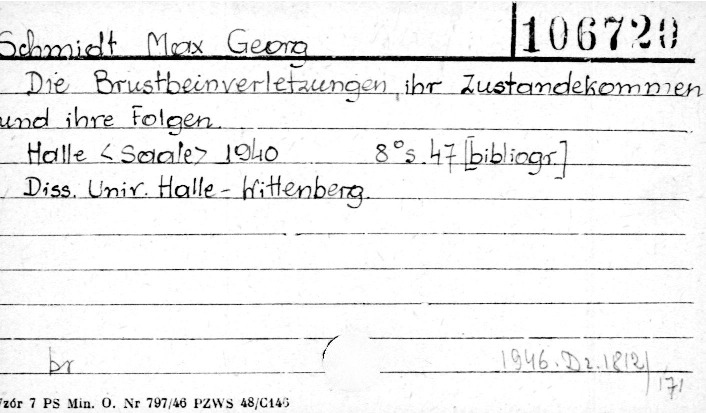 Schmidt Max Georg 106720
Die Brustbeinverletzungen, ihr Zustandekommen
und ihre Folgen.
Halle <Saale> 1940 8° s. 47 [bibliogr.]
Diss. Univ. Halle-Wittenberg.
br 1946. Dz. 1812/
171
Wzór 7 PS Min. O. Nr 797/46 PZWS 48/C146